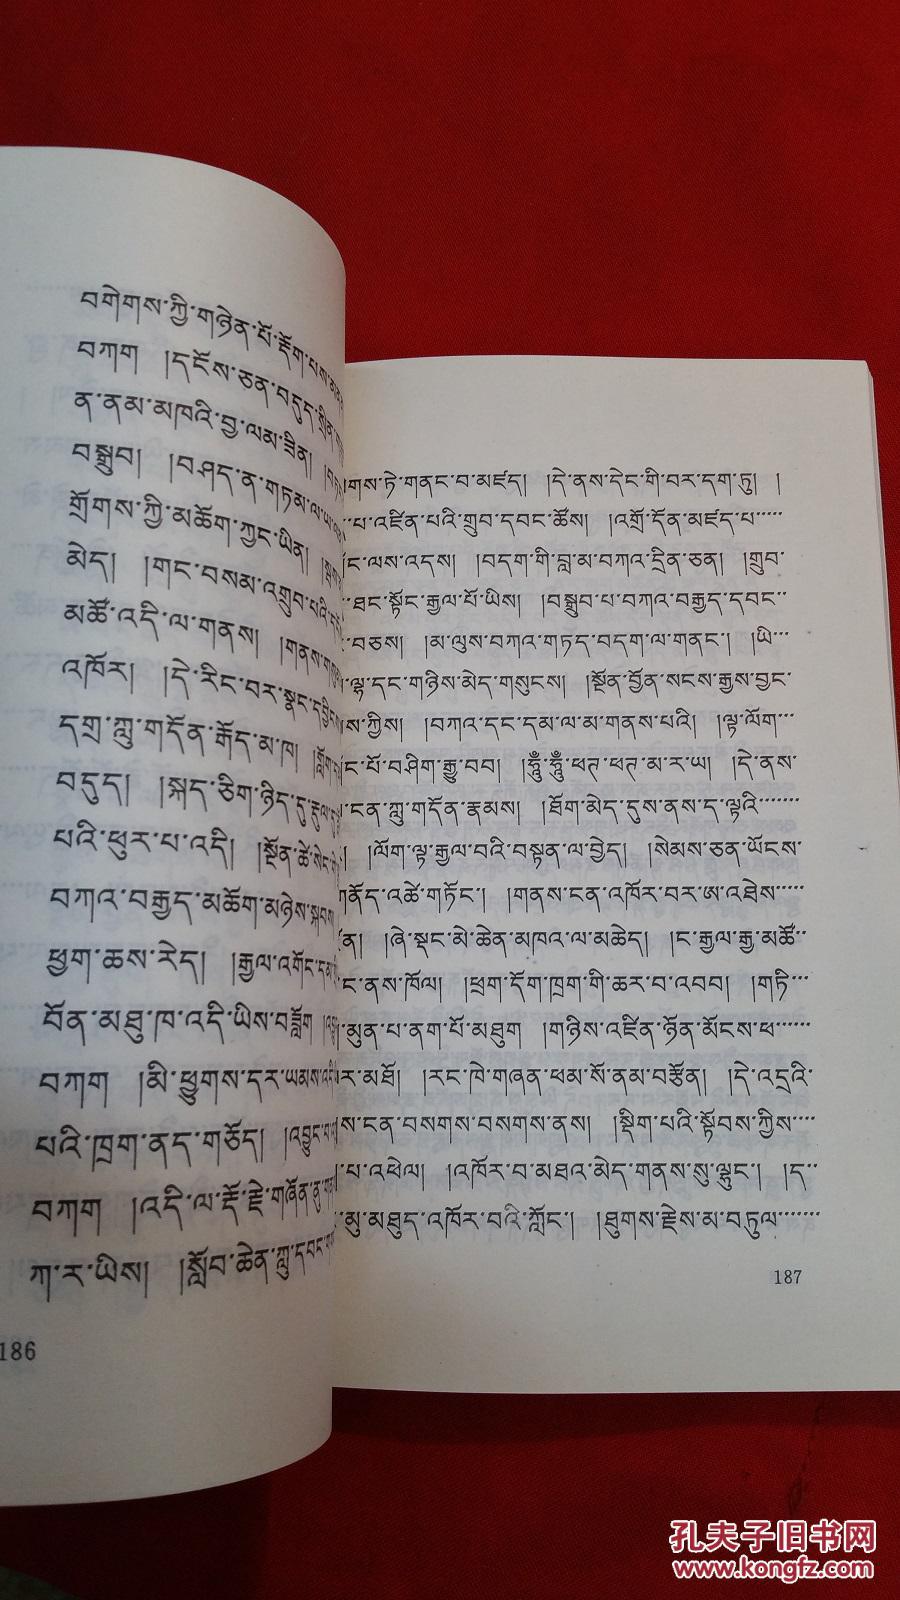 བགེགས་ཀྱི་གཉེན་པོ་རྡོག་པས་
བཀག །དངོས་ཅན་བདུད་སྲིན་
ན་ནམ་མཁའི་བྱ་ལམ་ཟིན།
བསྒྲུབ། །བཤད་ན་གཏམ་ལ་ཡ་
གྲོགས་ཀྱི་མཆོག་ཀྱང་ཡིན།
མེད། །གང་བསམ་འགྲུབ་པའི་
མཚོ་འདི་ལ་གནས། །གནས་
འཁོར། །དེ་རིང་བར་སྣང་
དགྲ་ཀླུ་གདོན་རྒོད་མ་ཁ། །གློག་
བདུད། །སྐད་ཅིག་ཉིད་དུ་རྡུལ་དུ་
པའི་ཕུར་པ་འདི། །སྔོན་ཚེ་སེང་གེ་
བཀའ་བརྒྱད་མཆོག་མཉེས་སྐབས།
ཕྱག་ཆས་རེད། །རྒྱལ་འགོང་དམ་
བོན་མཐུ་ཁ་འདི་ཡིས་བཟློག
བཀག །མི་ཕྱུགས་དར་ཡམས་
པའི་ཁྲག་ནད་གཅོད། །འབྱུང་
བཀག །འདི་ལ་རྡོ་རྗེ་གཞོན་ནུ་
ཀ་ར་ཡིས། །སློབ་ཆེན་ཀླུ་དབང་
186
གས་ཏེ་གནང་བ་མཛད། །དེ་ནས་དེང་གི་བར་དག་ཏུ། །
པ་འཛིན་པའི་གྲུབ་དབང་ཚོས། །འགྲོ་དོན་མཛད་པ་····
ང་ལས་འདས། །བདག་གི་བླ་མ་བཀའ་དྲིན་ཅན། །གྲུབ་
ཐང་སྟོང་རྒྱལ་པོ་ཡིས། །བསྒྲུབ་པ་བཀའ་བརྒྱད་དབང་··
བཅས། །མ་ལུས་བཀའ་གཏད་བདག་ལ་གནང་། །ཡི···
ལྷ་དང་གཉིས་མེད་གསུངས། །སྔོན་བྱོན་སངས་རྒྱས་བྱང་
ས་ཀྱིས། །བཀའ་དང་དམ་ལ་མ་གནས་པའི། །ལྟ་ལོག···
ང་པོ་བཤིག་རྒྱུ་བབ། །ཧཱུྃ་ཧཱུྃ་ཕཊ་ཕཊ་མ་ར་ཡ། །དེ་ནས་
ངན་ཀླུ་གདོན་རྣམས། །ཐོག་མེད་དུས་ནས་ད་ལྟའི······
། །ལོག་ལྟ་རྒྱལ་བའི་བསྟན་ལ་བྱེད། །སེམས་ཅན་ཡོངས་
གནོད་འཚེ་གཏོང་། །གནས་ངན་འཁོར་བར་ཨ་འཐེས····
ན། །ཞེ་སྡང་མེ་ཆེན་མཁའ་ལ་མཆེད། །ང་རྒྱལ་རྒྱ་མཚོ··
ང་ནས་ཁོལ། །ཕྲག་དོག་ཁྲག་གི་ཆར་བ་འབབ། །གཏི···
མུན་པ་ནག་པོ་མཐུག །གཉིས་འཛིན་ཉོན་མོངས་ཕ·····
ར་མཐོ། །རང་ཁེ་གཞན་ཕམ་སོ་ནམ་བརྩོན། །དེ་འདྲའི་
ས་ངན་བསགས་བསགས་ནས། །སྡིག་པའི་སྟོབས་ཀྱིས····
པ་འཕེལ། །འཁོར་བ་མཐའ་མེད་གནས་སུ་ལྷུང་། །ད··
མུ་མཐུད་འཁོར་བའི་ཀློང་། །ཐུགས་རྗེས་མ་བཏུལ·······
187
孔夫子旧书网
www.kongfz.com